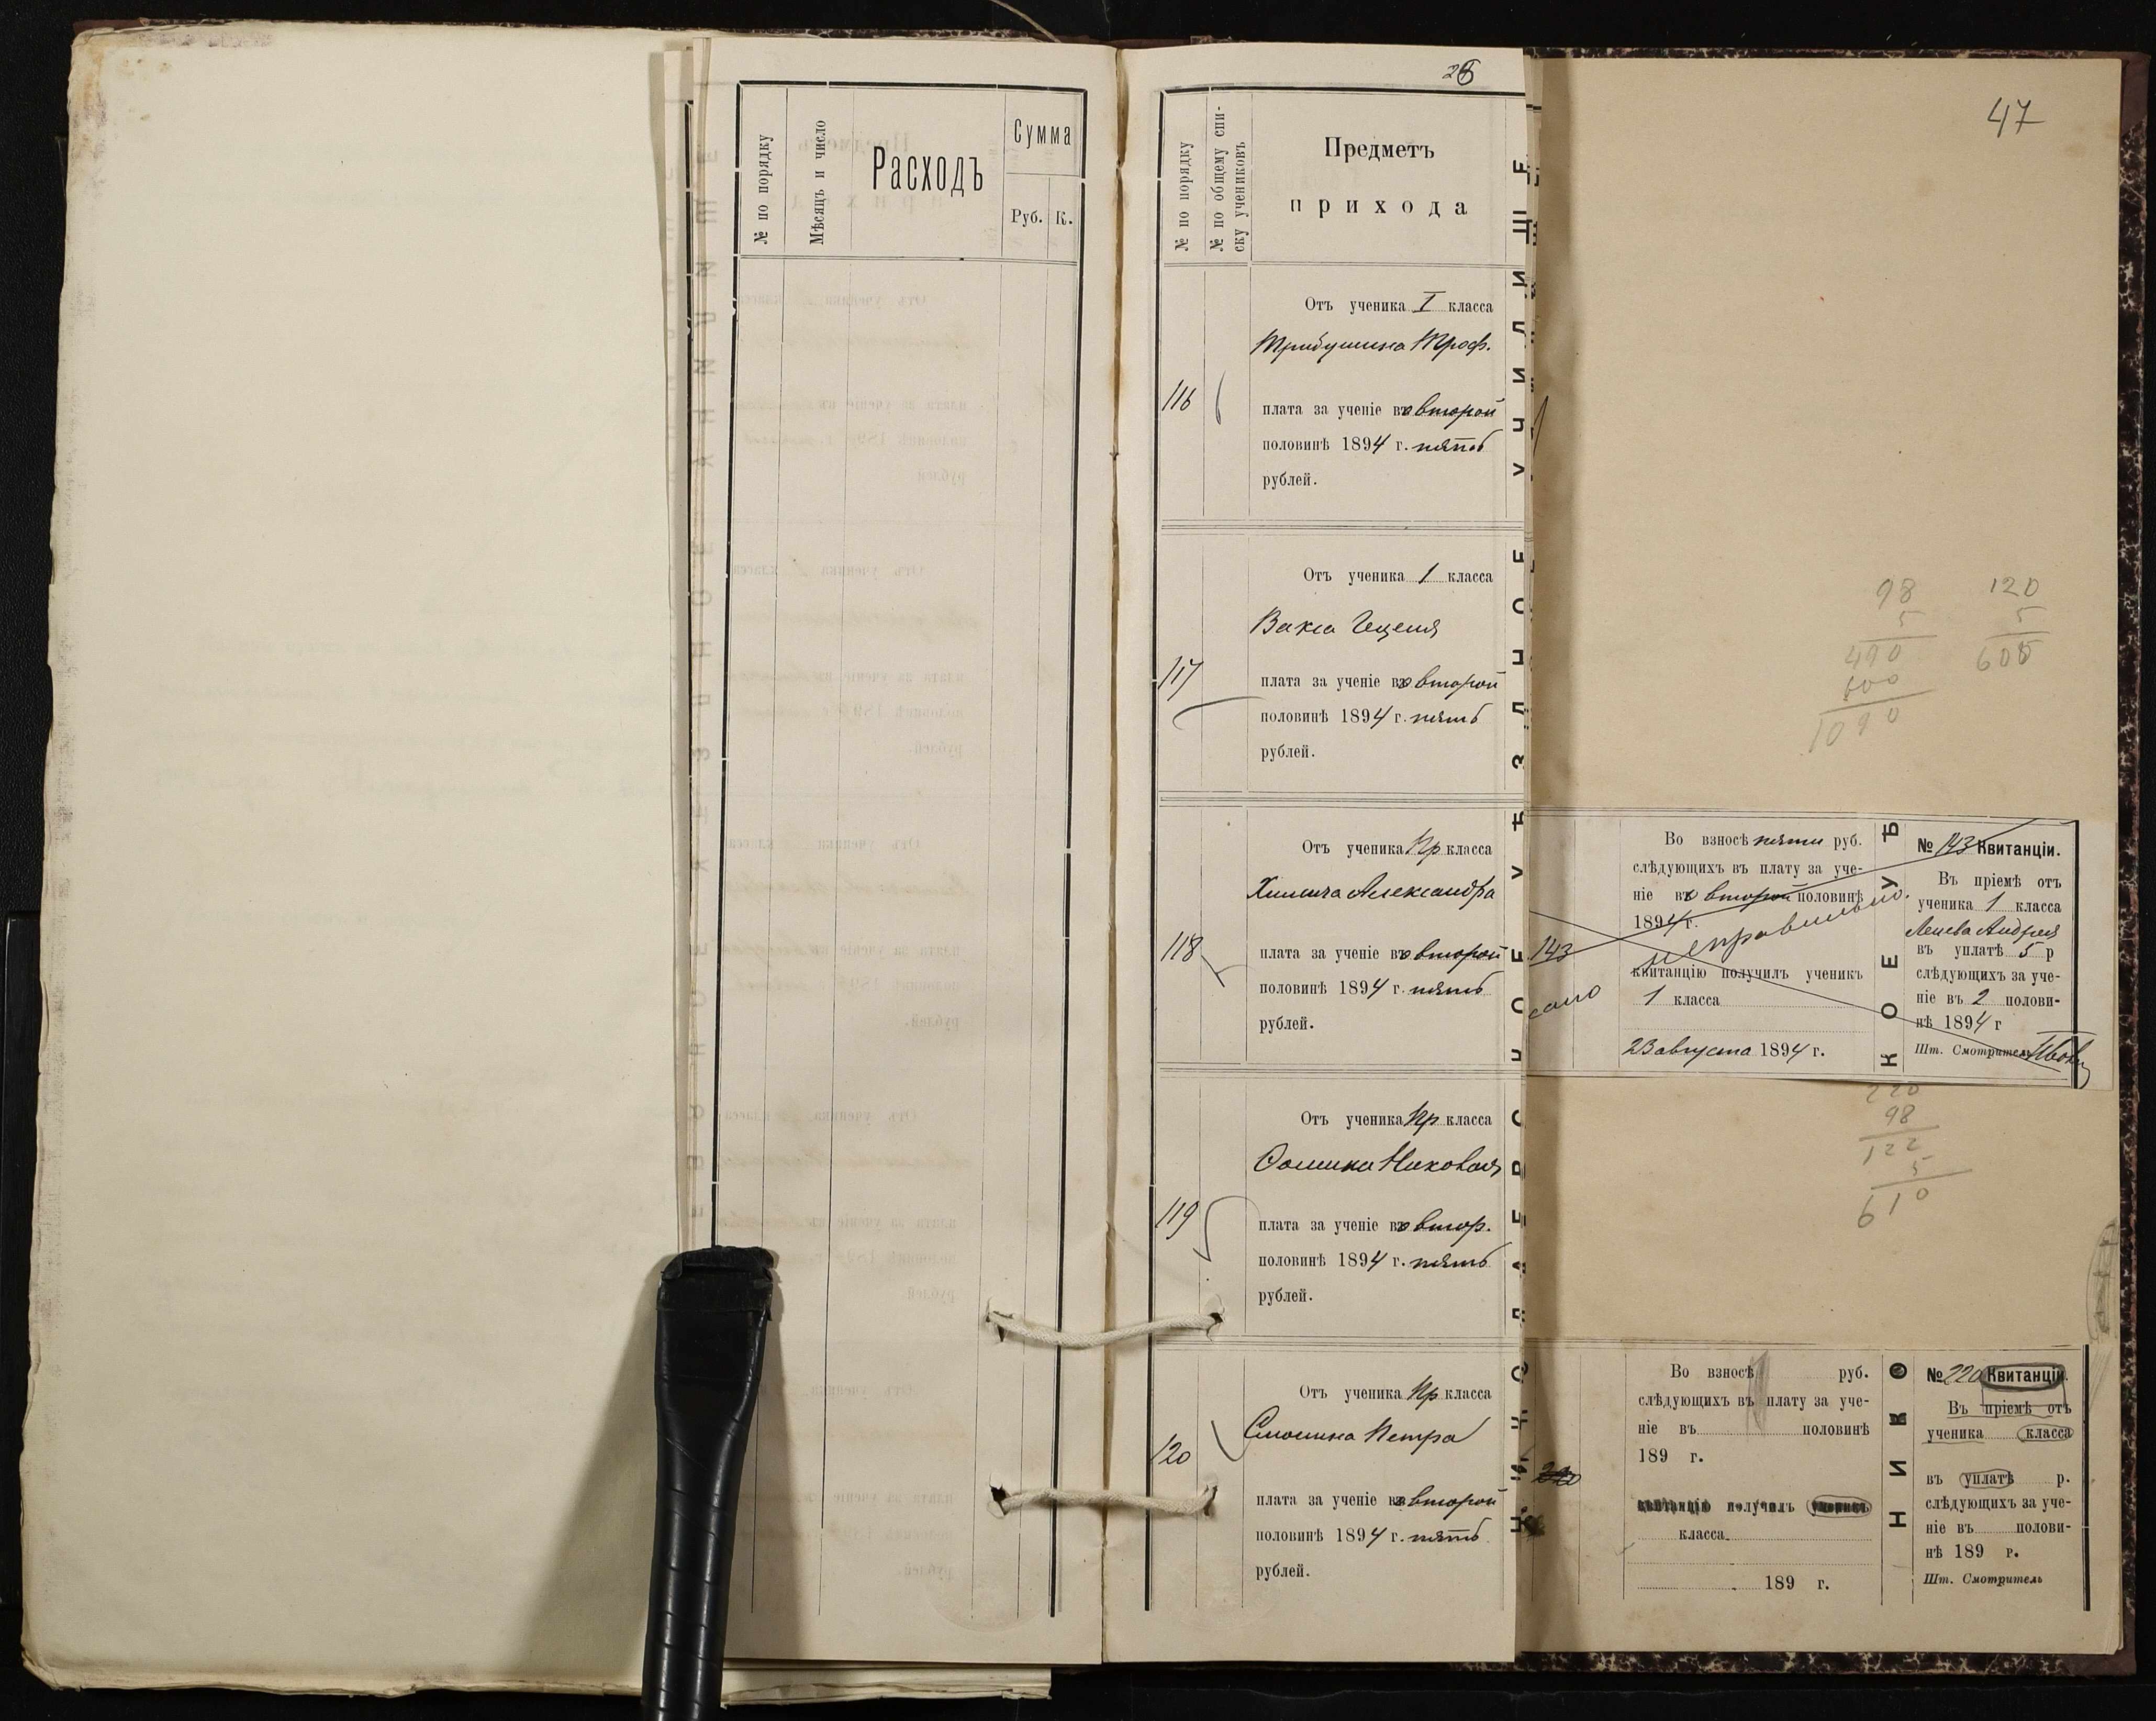 № по порядку
Мѣсяцъ и число
Расходъ
Сумма
Руб. К.
26
№ по порядку
№ по общему спи-
ску учениковъ
Предметъ
прихода
Отъ ученика I класса
Трибушина Троф.
116
плата за ученіе во второй
половинѣ 1894 г. пять
рублей.
Отъ ученика 1 класса
Вакса
117
плата за ученіе во второй
половинѣ 1894 г. пять
рублей.
Отъ ученика Пр класса
Химича Александра
118
плата за ученіе во второй
половинѣ 1894 г. пять
рублей.
Отъ ученика Пр класса
Николая
119
плата за ученіе во втор.
половинѣ 1894 г. пять
рублей.
Отъ ученика Пр класса
Петра
120
плата за ученіе во второй
половинѣ 1894 г. пять
рублей.
УѢЗДНОЕ УЧИЛИЩЕ
47
98
5
490
600
1090
120
5
600
143
Во взносѣ пяти руб.
слѣдующихъ въ плату за уче-
ніе во второй половинѣ
1894 г.
неправильно.
квитанцію получилъ ученикъ
1 класса
23 августа 1894 г.
КОЕ УѢ
№ 143 Квитанціи.
Въ пріемѣ отъ
ученика 1 класса
Андрея
въ уплатѣ 5 р
слѣдующихъ за уче-
ніе въ 2 полови-
нѣ 1894 г
Шт. Смотритель
220
98
122
5
610
220
Во взносѣ руб.
слѣдующихъ въ плату за уче-
ніе въ половинѣ
189 г.
квитанцію получилъ ученикъ
класса
189 г.
НИКО
№ 220 Квитанціи.
Въ пріемѣ отъ
ученика класса
въ уплатѣ р.
слѣдующихъ за уче-
ніе въ полови-
нѣ 189 г.
Шт. Смотритель